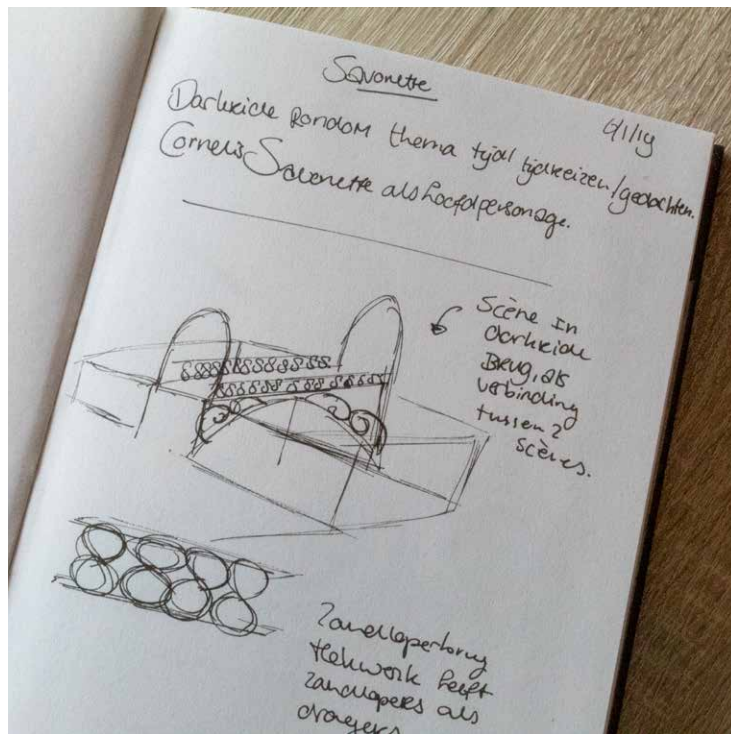 Savonette
6/1/19
Darkride Rondom thema tijd/tijdreizen/gedachten.
Cornelis Savonette als hoofdpersonage.
Scène In
darkride
Brug, als
verbinding
tussen 2
scènes.
Zandloperbrug
Hekwerk heeft
zandlopers als
dragers